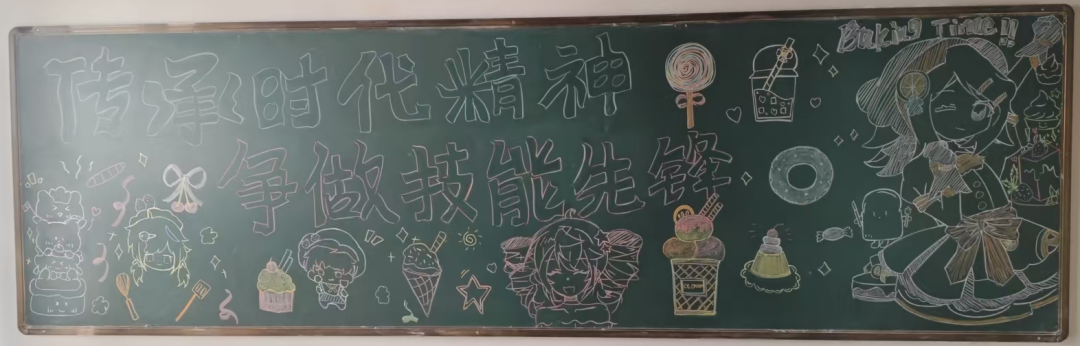 传承时代精神
争做技能先锋
Baking Time!!